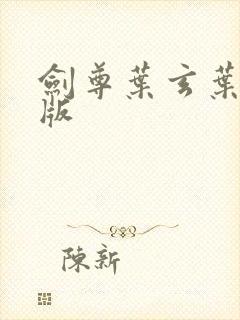 劍尊葉玄葉
版
陳新